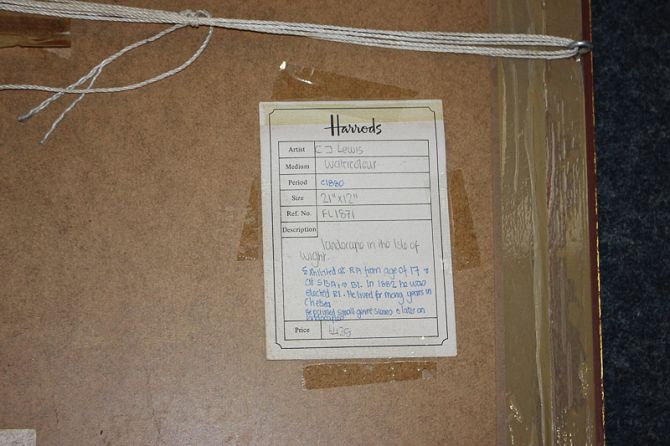 Harrods
Artist C J Lewis
Medium Watercolour
Period C1880
Size 21" x 12"
Ref. No. FL1871
Description
landscape in the Isle of
Wight.
Exhibited at RA from age of 17 &
at SBA, & BI. In 1882 he was
elected RI. He lived for many years in
Chelsea
He painted small genre scenes & later on
landscapes
Price